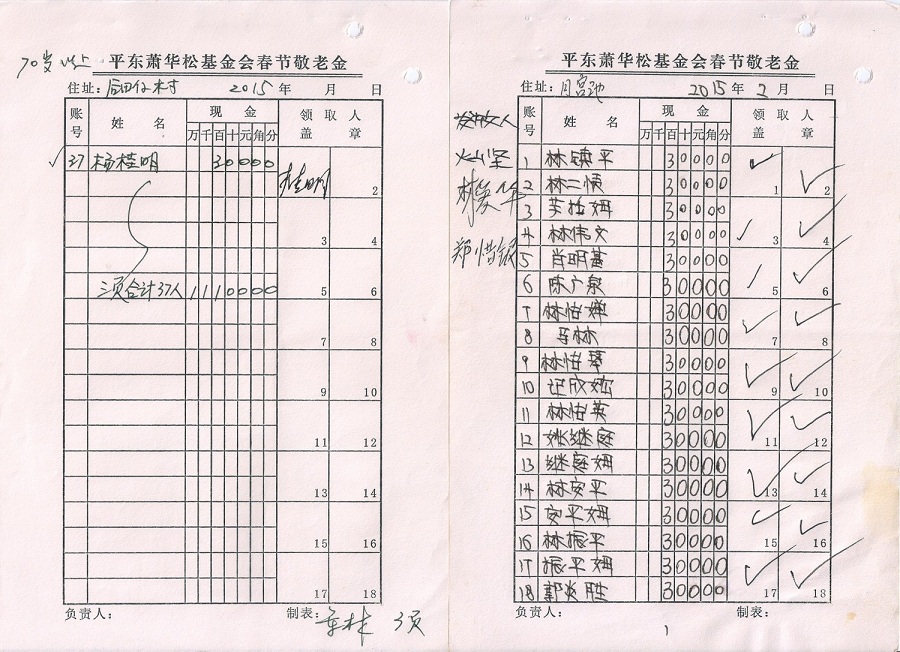 70岁以上 平东萧华松基金会春节敬老金
住址：后田仔村 2015年 月 日
账号 姓名 现金 领取人盖章
万千百十元角分
37 杨桂明 30000
桂明
2
3 4
三页合计37人 1110000
5 6
7 8
9 10
11 12
13 14
15 16
17 18
负责人： 制表： 3页
平东萧华松基金会春节敬老金
住址：月宫池 2015年2月 日
账号 姓名 现金 领取人盖章
万千百十元角分
1 林镇平 30000 1
2 林二惜 30000 2
3 30000 3
4 林伟文 30000 4
5 肖明基 30000 5
6 陈广泉 30000 6
7 林怡婵 30000 7
8 30000 8
9 林怡琴 30000 9
10 30000 10
11 林怡英 30000 11
12 姚继庭 30000 12
13 继庭姆 30000 13
14 林安平 30000 14
15 安平姆 30000 15
16 林振平 30000 16
17 振平姆 30000 17
18 郭炎胜 30000 18
郑惜银
负责人： 制表：
1